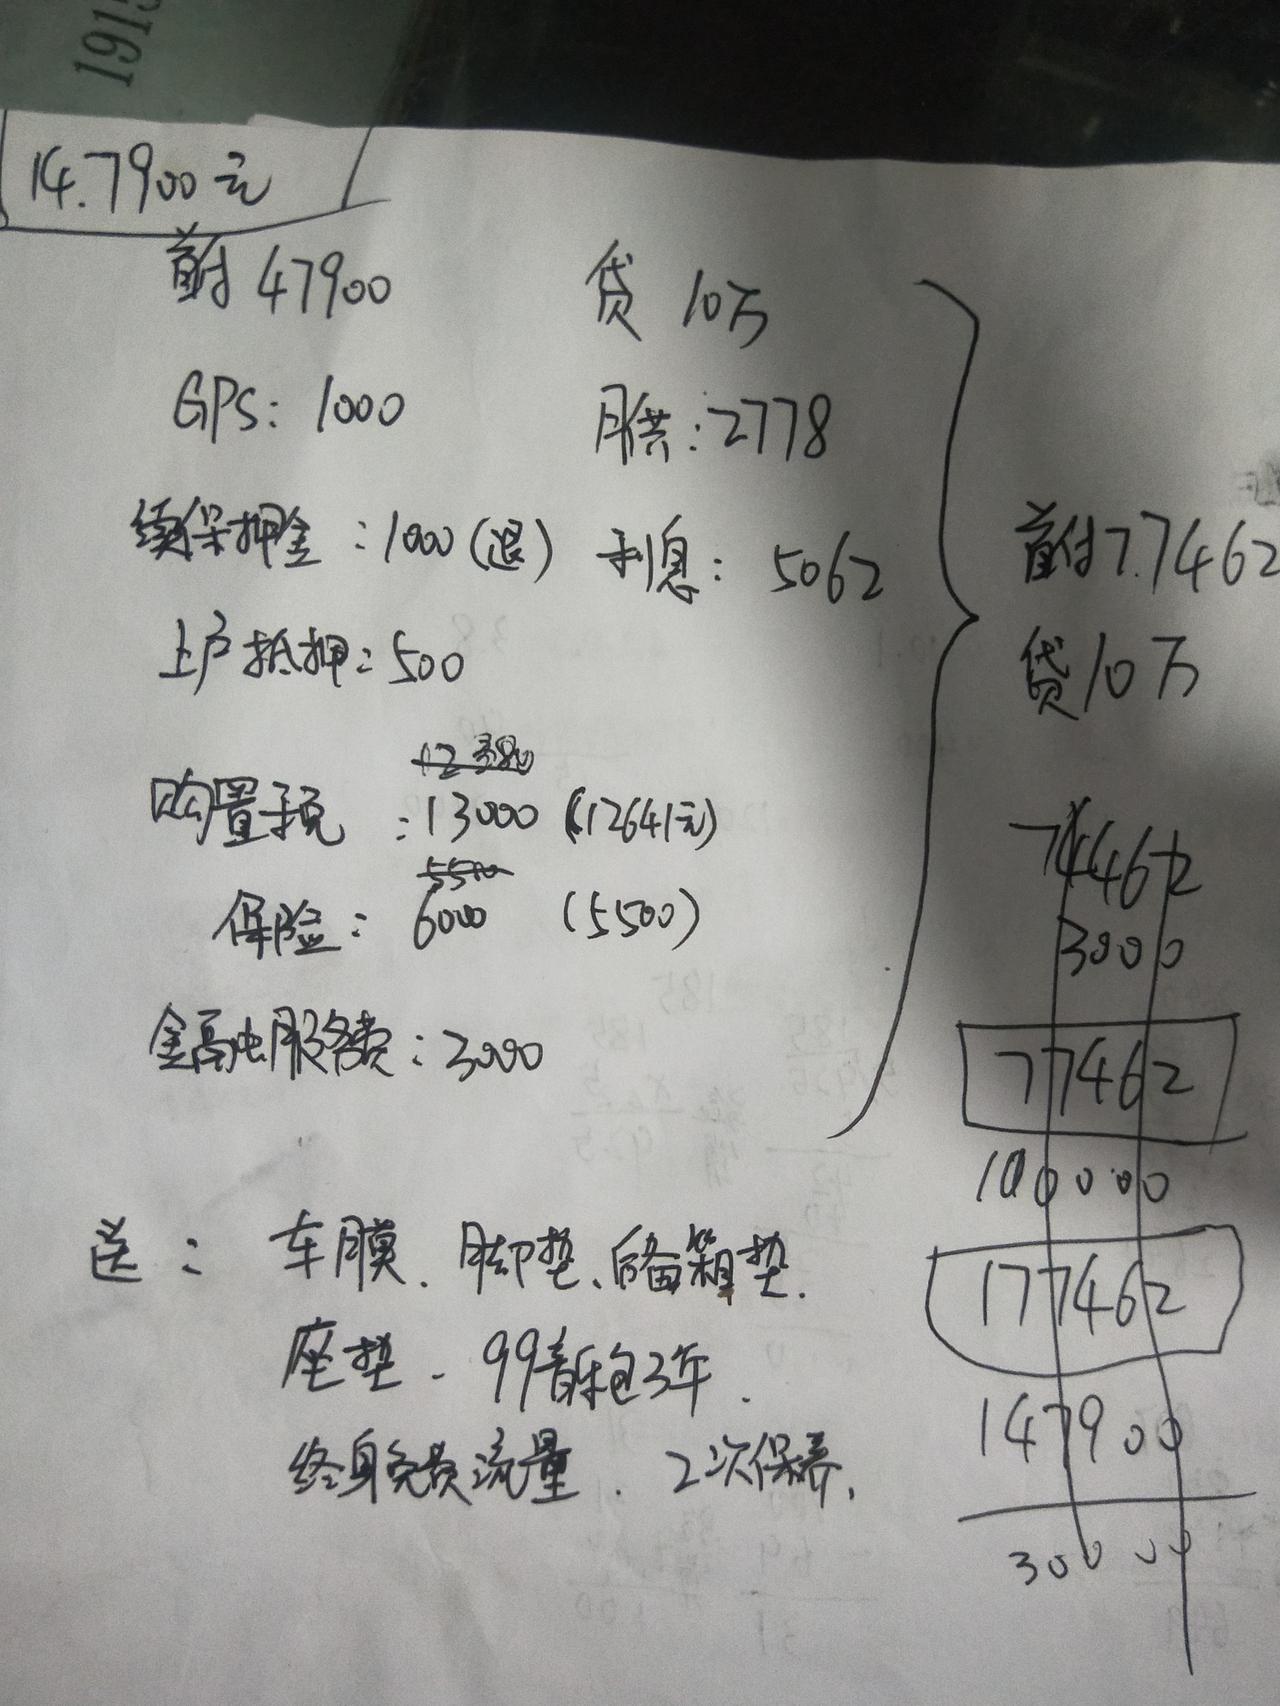 1915
14.7900元
首付 47900 贷 10万
GPS: 1000 月供: 2778
续保押金: 1000 (退) 利息: 5062
上户抵押: 500
12380
购置税: 13000 (12641元)
5500
保险: 6000 (5500)
金融服务费: 3000
送: 车膜. 脚垫、后备箱垫.
座垫. 99音乐包3年.
终身免费流量. 2次保养.
首付 7.7462
贷10万
74462
3000
77462
100000
177462
147900
30000